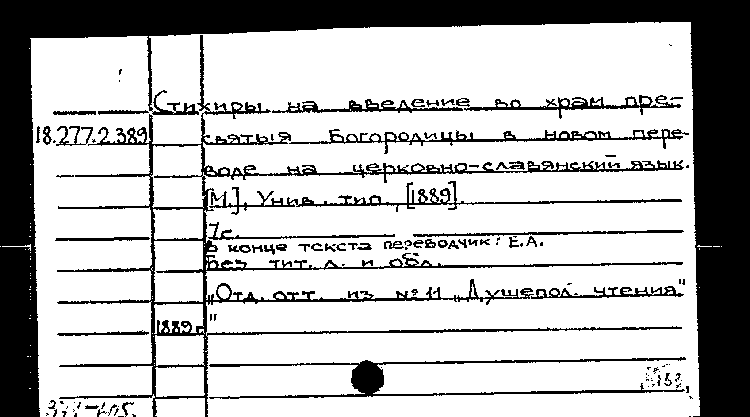 Стихиры на введение во храм пре-
18.277.2.389 святыя Богородицы в новом пере-
воде на церковно-славянский язык.
[М.], Унив. тип., [1889].
7с.
В конце текста переводчик: Е.А.
Без тит. л. и обл.
„Отд. отт. из №11 „Душепол. чтения"
1889 г."